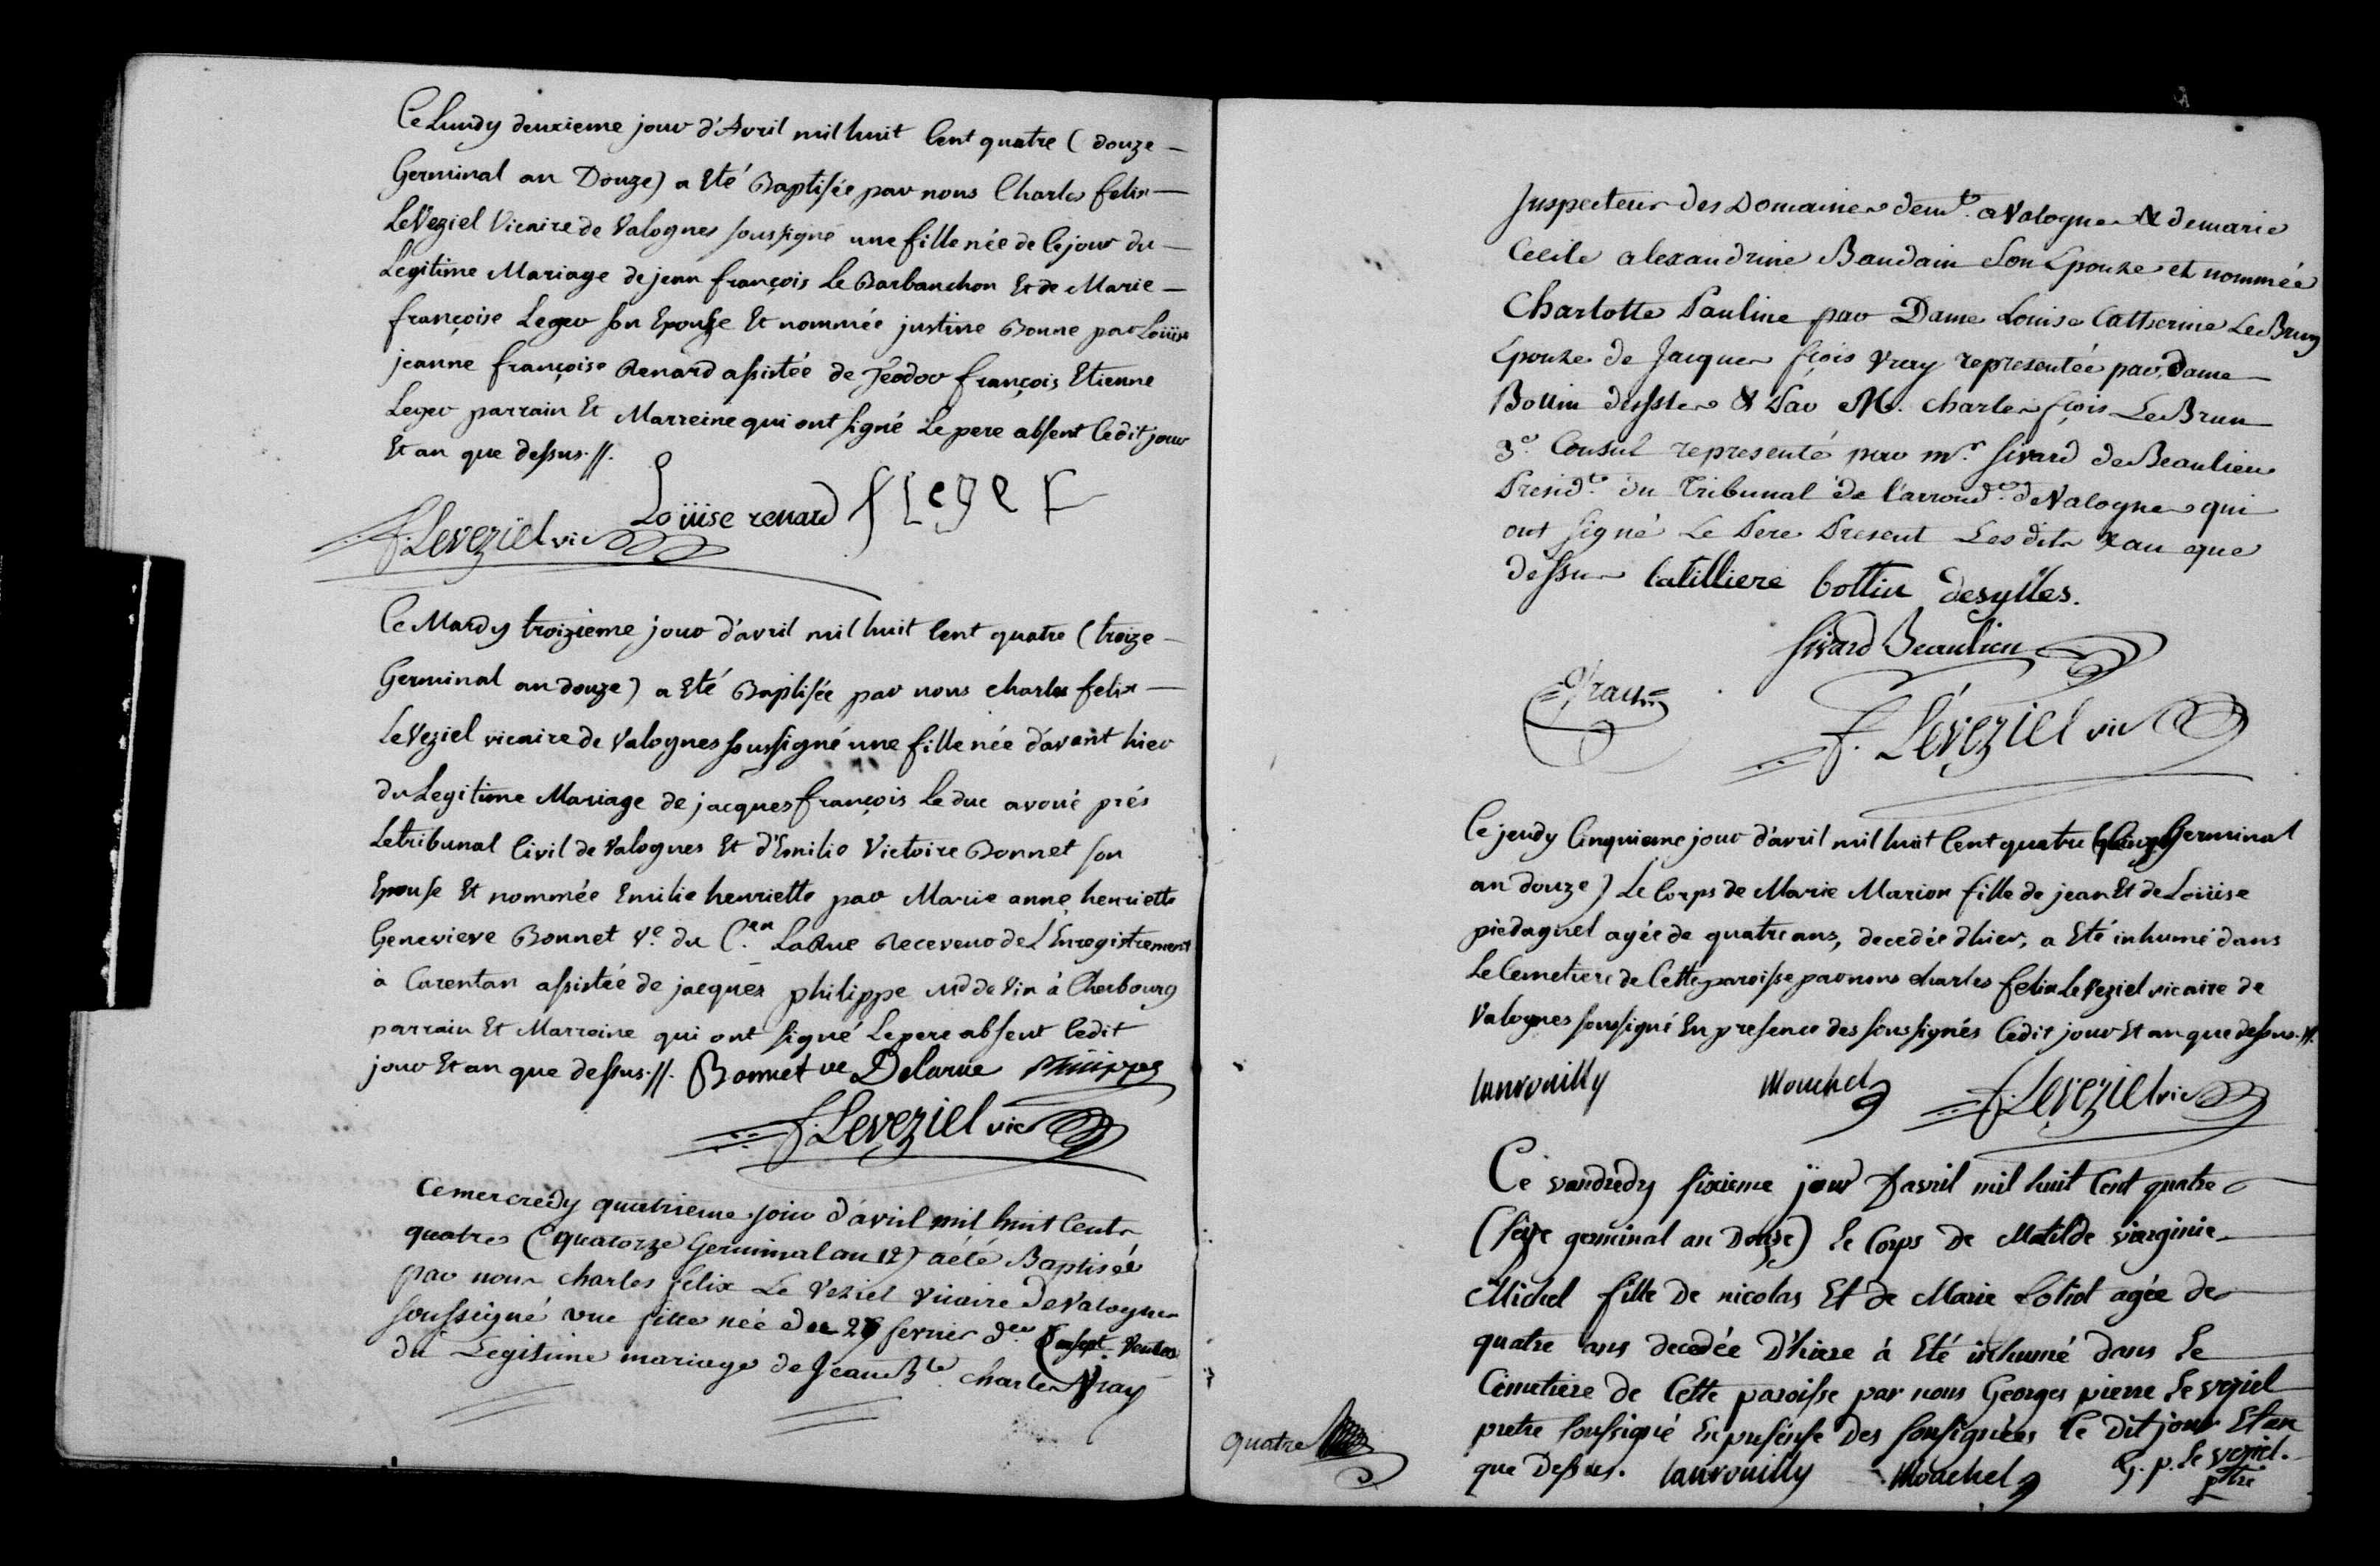 Ce Lundy deuxieme jour d'Avril mil huit Cent quatre ( douze
Germinal an Douze) a Eté Baptisée par nous Charles felix
LeVeziel Vicaire de Valognes soussigné une fille née de Ce jour du
Legitime Mariage de jean françois Le Barbanchon Et de Marie
françoise Leger son Epouse Et nommée justine Bonne par Louise
jeanne françoise Renard assistée de françois Etienne
Leger parrain Et Marreine qui ont signé Le pere absent Ledit jour
Et an que dessus.//.
Loüise renard f Leger
f. Leveziel vic
Ce Mardy troizieme jour d'avril mil huit Cent quatre (treize
Germinal an douze) a Eté Baptisée par nous charles felix
LeVeziel vicaire de Valognes soussigné une fille née d'avant hier
du Legitime Mariage de jacques françois Le duc avoué prés
Le tribunal Civil de Valognes Et d'Emilie Victoire Bonnet son
Epouse Et nommée Emilie henriette par Marie anne henriette
Genevieve Bonnet Ve. du C.en LaRue Receveur de L'Enregistrement
à Carentan assistée de jacques philippe Md de Vin à Cherbourg
parrain Et Marreine qui ont signé Le pere absent Ledit
jour Et an que dessus.//. Bonnet ve Delarue Philippe
f. Leveziel vic
Ce mercredy quatrieme jour d'avril mil huit Cent
quatre (quatorze Germinal an 12) a eté Baptisée
par nous charles felix Le Veziel Vicaire de Valognes
soussigné une fille née du fevrier der
du Legitime mariage de Jean Bte charles Vray
Inspecteur des Domaines demt. a Valognes & de marie
Cecile alexandrine Baudain son Epouse et nommée
Charlotte Pauline par Dame Louise Catherine Le Brun
Epouse de Jacques fçois Vray representée par dame
Bottin & Par M. charles fçois LeBrun
3e. Consul representé par mr. Sivard de Beaulieu
Presidt. du Tribunal de l'arrond. de Valognes qui
ont signé Le Pere Present Les dits & an que
dessus Catilliere bottin desylles.
Sivard Beaulieu
Vray
f. Leveziel vic
Ce jeudy Cinquieme jour d'avril mil huit Cent quatre (quinze Germinal
an douze) Le Corps de Marie Marion fille de jean Et de Loüise
piedagnel agée de quatre ans, decedée d'hier, a Eté inhumé dans
Le Cemetiere de Cette paroisse par nous charles felix LeVeziel vicaire de
Valognes soussigné En presence des soussignés Ledit jour Et an que dessus.//.
Lanrouilly Mouchel f. Leveziel vic
Ce vandredy sixieme jour D'avril mil huit Cent quatre
(seize germinal an Douze) Le Corps De Matilde vierginie
Michel fille De nicolas Et de Marie Lotiot agée de
quatre ans decedée D'hiere à Eté inhumé dans Le
Cimetiere de Cette paroisse par nous Georges pierre Le veziel
pretre soussigné En presense Des sousignées le Dit jour Et an
que Dessus. Lanrouilly Mouchel G. p. Le veziel.
ptre
quatre